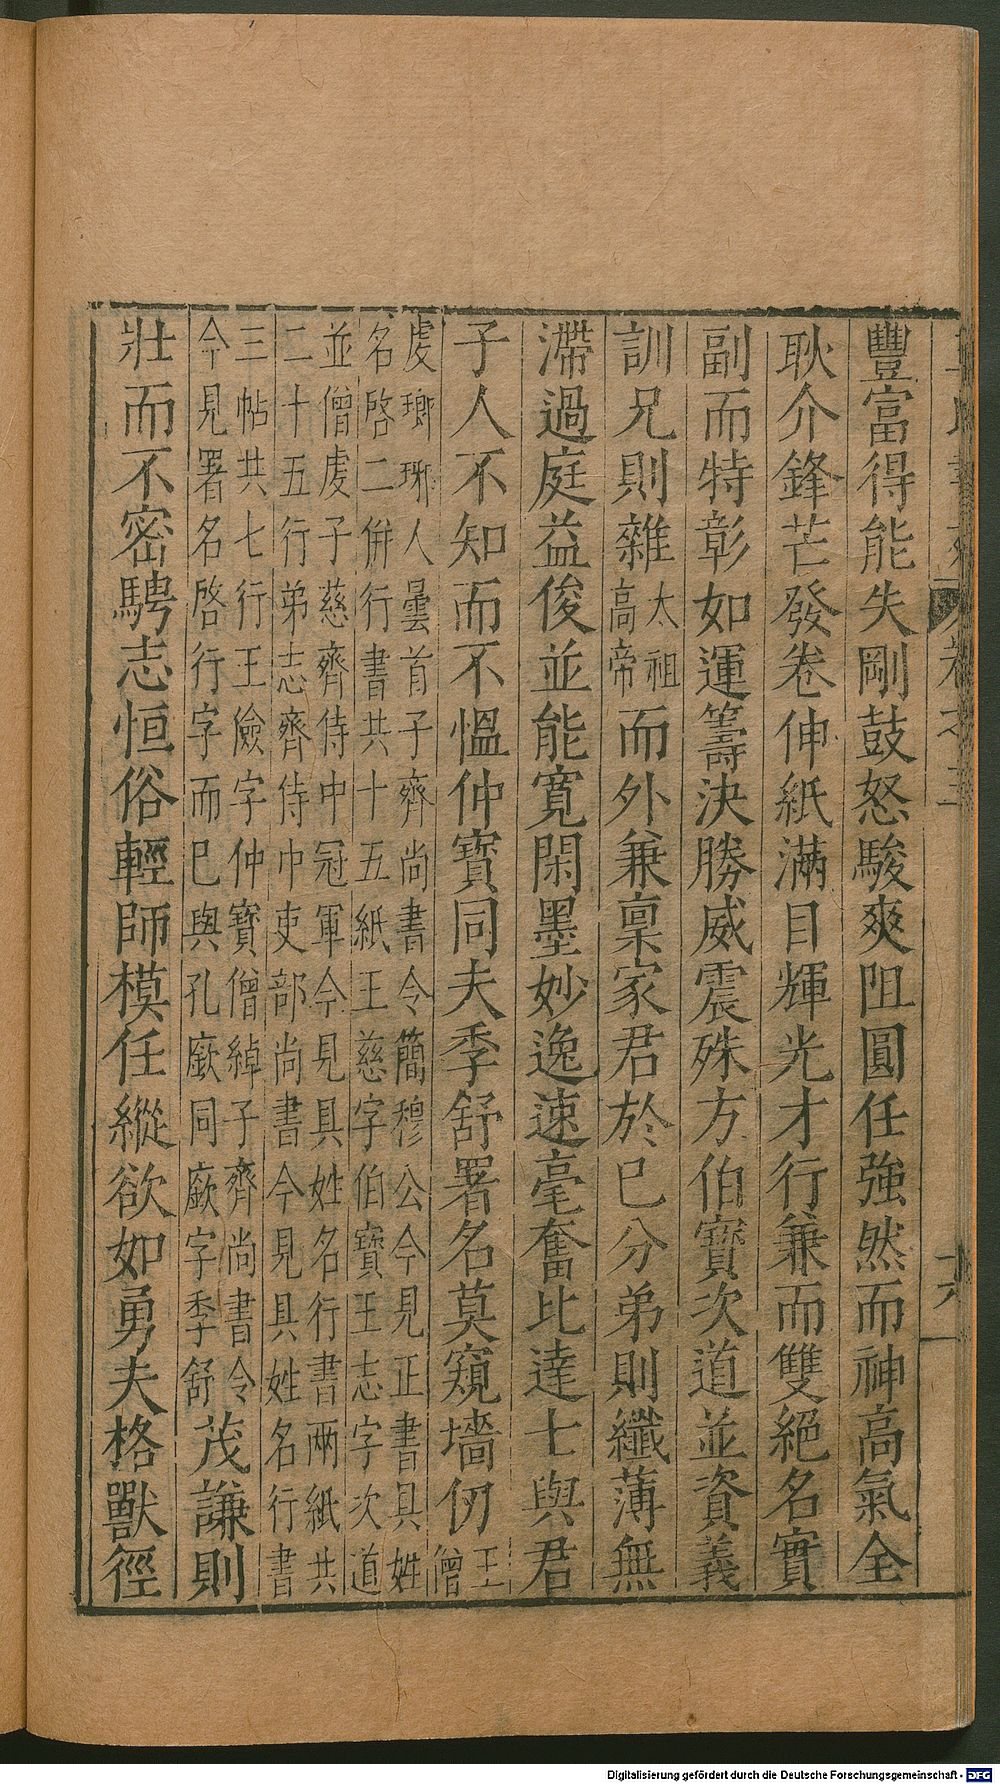 卷之三
十六
豐富得能失剛鼓怒駿爽阻圓任強然而神高氣全
耿介鋒芒發卷伸紙滿目輝光才行兼而雙絕名實
副而特彰如運籌決勝威震殊方伯寶次道並資義
訓兄則雜太祖高帝而外兼稟家君於巳分弟則纖薄無
滯過庭益俊並能寬閑墨妙逸速毫奮比達士與君
子人不知而不慍仲寶同夫季舒署名莫窺墻仞王僧
虔瑯琊人曇首子齊尚書令簡穆公今見正書具姓
名啓二併行書共十五紙王慈字伯寶王志字次道
並僧虔子慈齊侍中冠軍今見具姓名行書兩紙共
二十五行弟志齊侍中吏部尚書今見具姓名行書
三帖共七行王儉字仲寶僧綽子齊尚書令
今見署名啓行字而巳與孔廞同廞字季舒
茂謙則
壯而不密騁志恒俗輕師模任縱欲如勇夫格獸徑
Digitalisierung gefördert durch die Deutsche Forschungsgemeinschaft - DFG